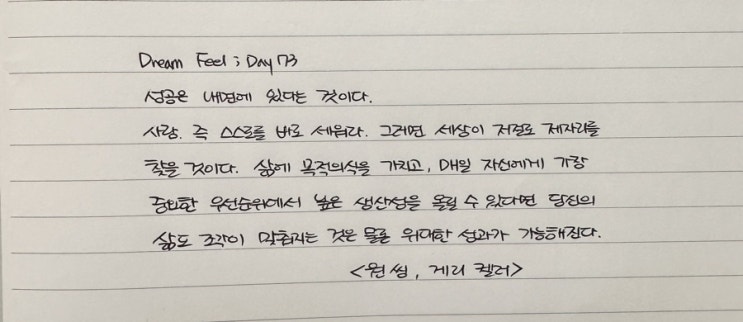 Dream Feel ; Day 73
성공은 내면에 있다는 것이다.
사람. 즉 스스로를 바로 세워라. 그러면 세상이 저절로 제자리를
찾을 것이다. 삶에 목적의식을 가지고, 매일 자신에게 가장
중요한 우선순위에서 높은 생산성을 올릴 수 있다면 당신의
삶도 조각이 맞춰지는 것은 물론 위대한 성과가 가능해진다.
<원씽, 게리 켈러>